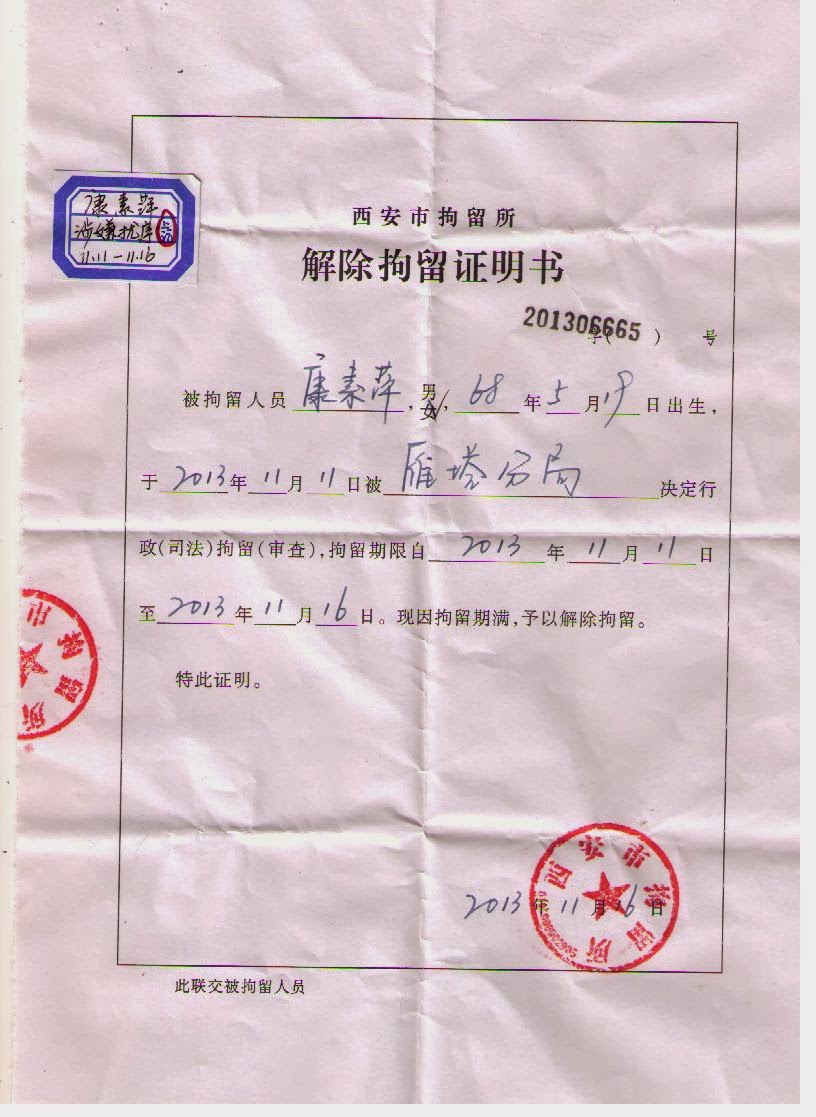 康素萍
涉嫌扰序
11.11-11.16
西安市拘留所
解除拘留证明书
201306665
字( ) 号
被拘留人员 康素萍,男女,68年5月19日出生,
于2013年11月11日被雁塔分局决定行
政(司法)拘留(审查),拘留期限自2013年11月11日
至2013年11月16日。现因拘留期满,予以解除拘留。
特此证明。
市拘留所
西安市拘留所
2013年11月16日
此联交被拘留人员